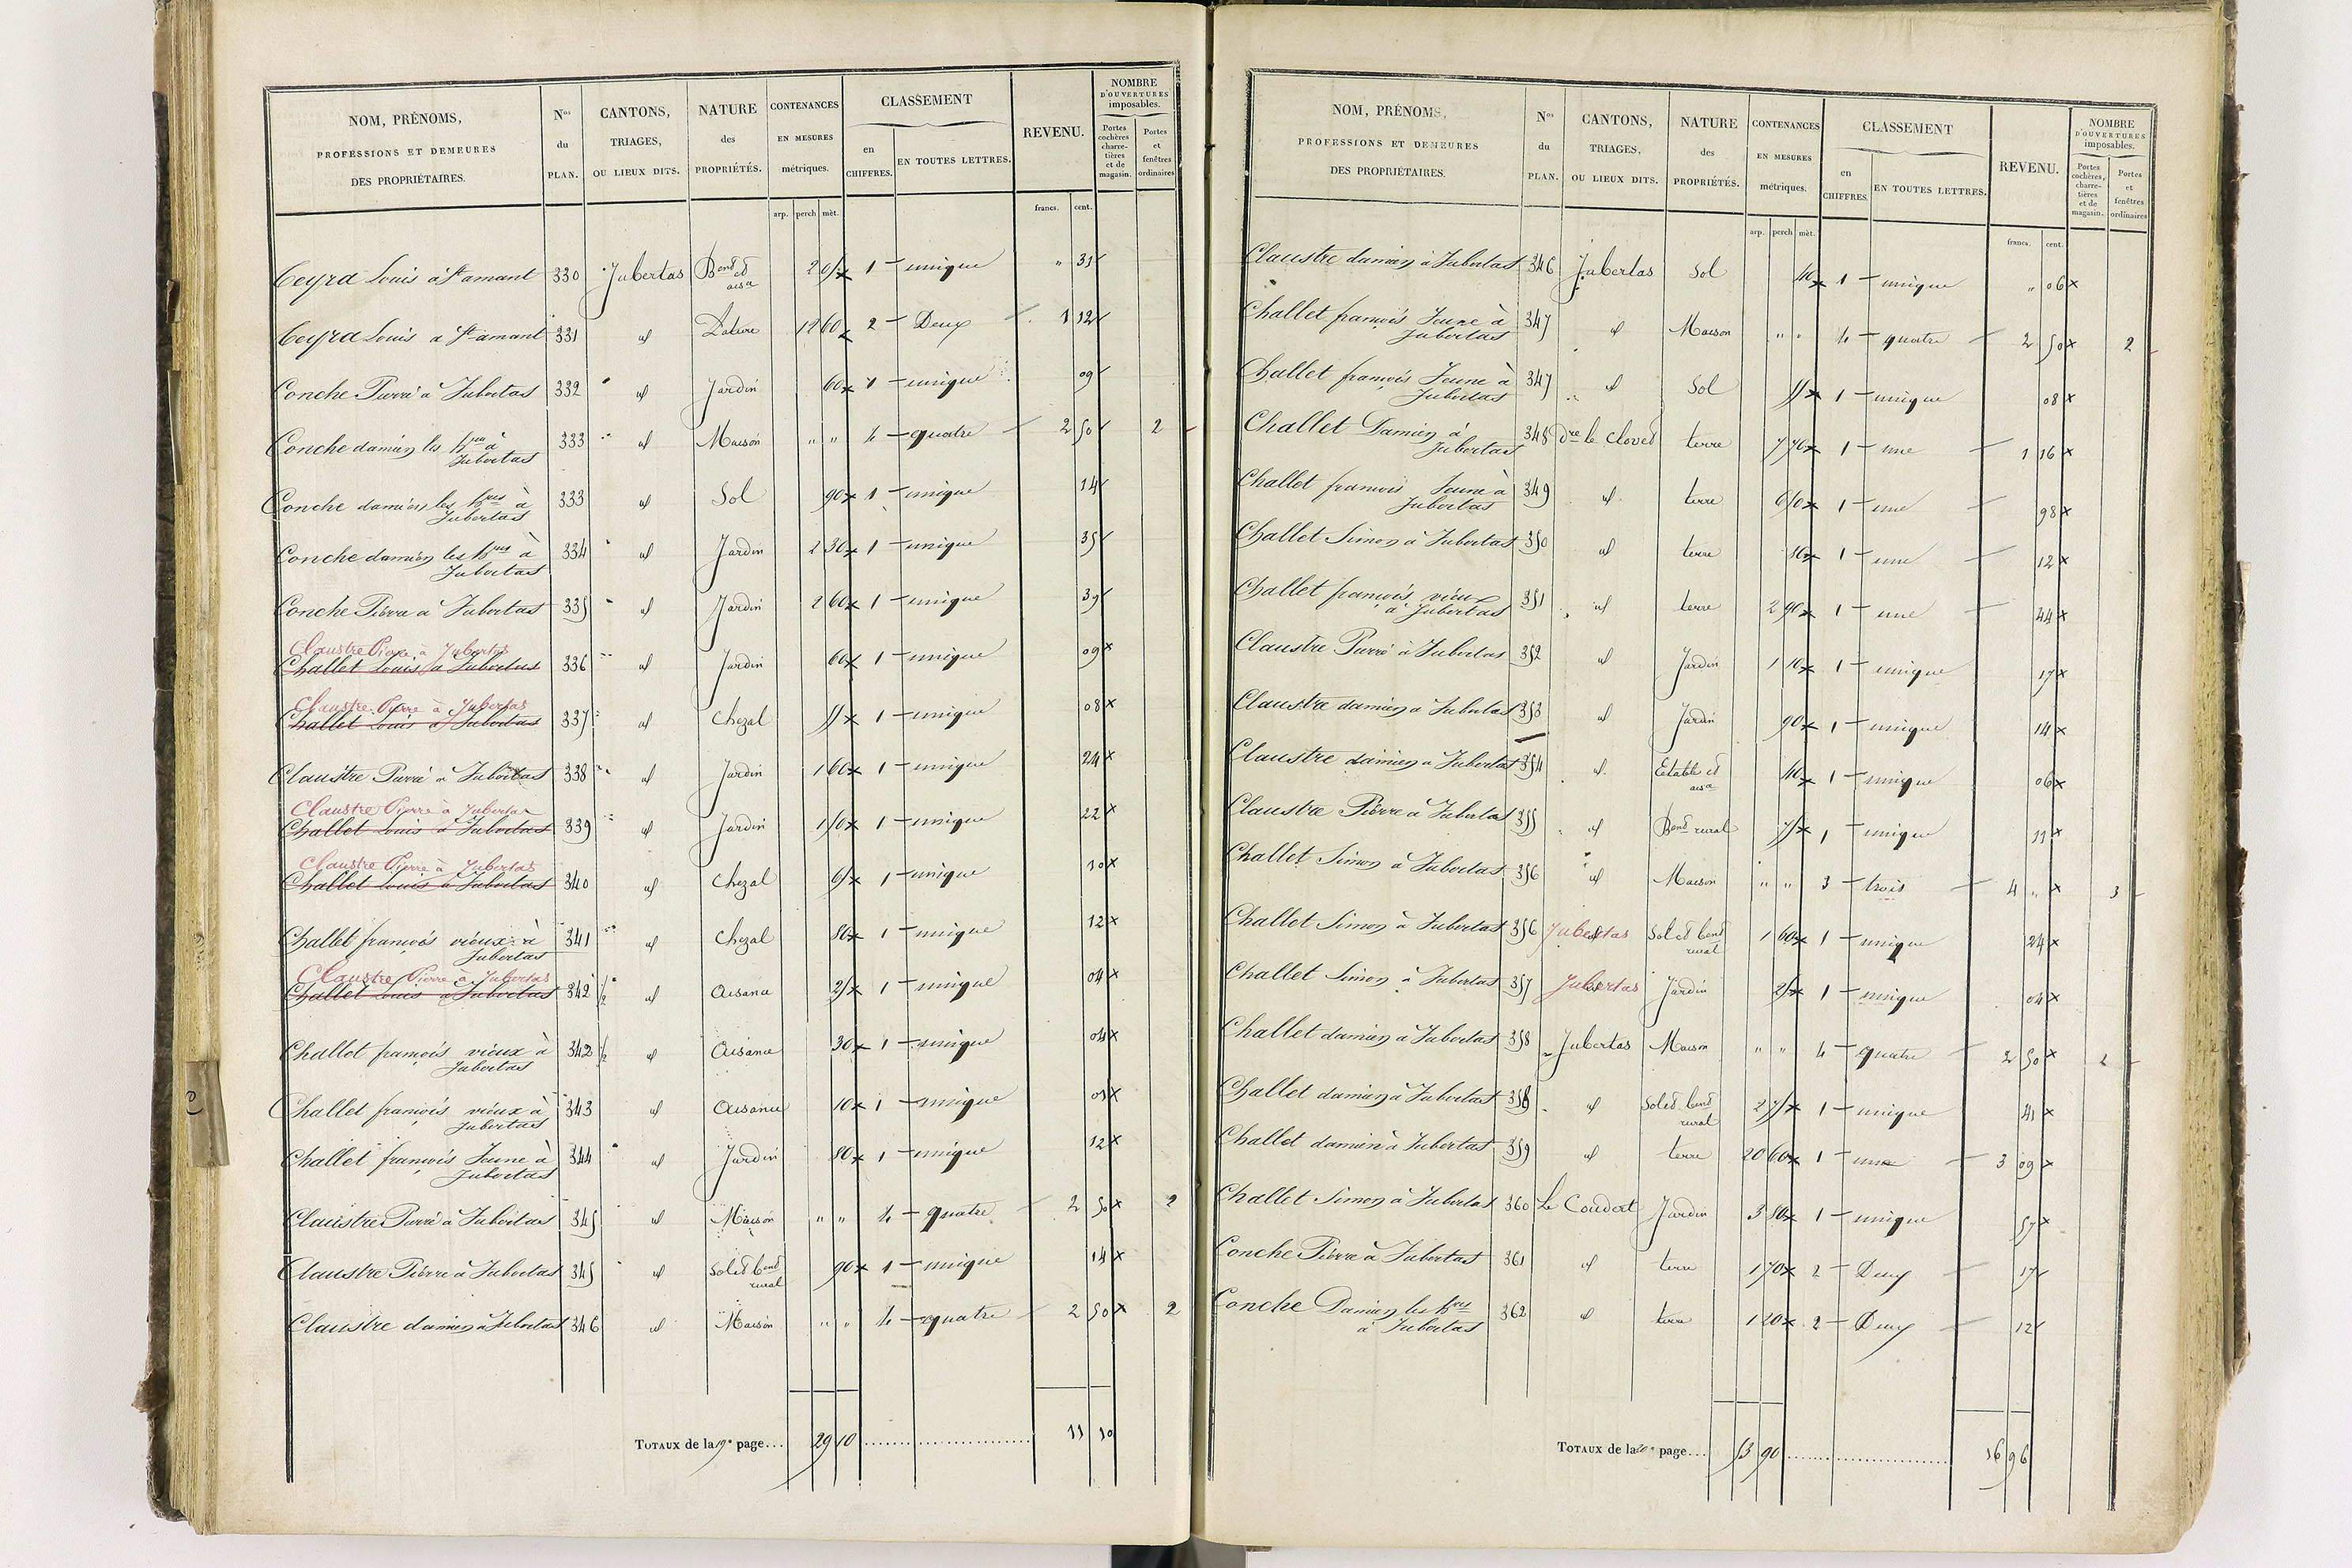 NOM, PRÉNOMS, PROFESSIONS ET DEMEURES DES PROPRIÉTAIRES.
Nos du PLAN.
CANTONS, TRIAGES, OU LIEUX DITS.
NATURE des PROPRIÉTÉS.
CONTENANCES EN MESURES métriques.
CLASSEMENT
en CHIFFRES.
EN TOUTES LETTRES.
REVENU.
NOMBRE D'OUVERTURES imposables.
Portes cochères charretières et de magasin.
Portes et fenêtres ordinaires
arp. perch mèt. francs. cent.
Ceyra Louis à St amant 330 Jubertas 1 unique " 31
Ceyra Louis a St amant 331 id 12 60 2 Deux 1 12
Conche Pierre à Jubertas 332 id Jardin 60 1 unique 09
Conche damien les hres à Jubertas 333 id Maison " " 4 quatre 2 50 2
Conche damien les hres à Jubertas 333 id Sol 90 1 unique 14
Conche damien les hres à Jubertas 334 id Jardin 2 30 1 unique 35
Conche Pierre à Jubertas 335 id Jardin 2 60 1 unique 39
Claustre Pierre à Jubertas
Challet Louis à Jubertas 336 id Jardin 60 1 unique 09
Claustre Pierre à Jubertas
Challet Louis à Jubertas 337 id Chezal 55 1 unique 08
Claustre Pierre à Jubertas 338 id Jardin 1 60 1 unique 24
Claustre Pierre à Jubertas
Challet Louis à Jubertas 339 id Jardin 1 50 1 unique 22
Claustre Pierre à Jubertas
Challet Louis à Jubertas 340 id Chezal 65 1 unique 10
Challet françois vieux à Jubertas 341 id Chezal 80 1 unique 12
Claustre Pierre à Jubertas
Challet Louis à Jubertas 342 1/2 id Aisance 25 1 unique 04
Challet françois vieux à Jubertas 342 1/2 id Aisance 30 1 unique 04
Challet françois vieux à Jubertas 343 id Aisance 10 1 unique 01
Challet françois Jeune à Jubertas 344 id Jardin 80 1 unique 12
Claustre Pierre à Jubertas 345 id Maison " " 4 quatre 2 50 2
Claustre Pierre à Jubertas 345 id Sol et bend rural 90 1 unique 14
Claustre damien à Jubertas 346 id Maison " " 4 quatre 2 50 2
TOTAUX de la 19e page... 29 10 11 10
NOM, PRÉNOMS, PROFESSIONS ET DEMEURES DES PROPRIÉTAIRES.
Nos du PLAN.
CANTONS, TRIAGES, OU LIEUX DITS.
NATURE des PROPRIÉTÉS.
CONTENANCES EN MESURES métriques.
CLASSEMENT
en CHIFFRES.
EN TOUTES LETTRES.
REVENU.
NOMBRE D'OUVERTURES imposables.
Portes cochères, charretières et de magasin.
Portes et fenêtres ordinaires
arp. perch mèt. francs. cent.
Claustre damien à Jubertas 346 Jubertas Sol 40 1 unique " 06
Challet françois Jeune à Jubertas 347 id Maison " " 4 quatre 2 50 2
Challet françois Jeune à Jubertas 347 id Sol 55 1 unique 08
Challet Damien à Jubertas 348 dre le Cloved terre 7 70 1 une 1 16
Challet françois Jeune à Jubertas 349 id terre 6 50 1 une 98
Challet Simon à Jubertas 350 id terre 80 1 une 12
Challet françois vieux à Jubertas 351 id terre 2 90 1 une 44
Claustre Pierre à Jubertas 352 id Jardin 1 10 1 unique 17
Claustre damien à Jubertas 353 id Jardin 90 1 unique 14
Claustre damien à Jubertas 354 id Etable et aisce 40 1 unique 06
Claustre Pierre à Jubertas 355 id Bend rural 75 1 unique 11
Challet Simon à Jubertas 356 id Maison " " 3 trois 4 " 3
Challet Simon à Jubertas 356 Jubertas Sol et bend rural 1 60 1 unique 24
Challet Simon à Jubertas 357 Jubertas Jardin 25 1 unique 04
Challet damien à Jubertas 358 Jubertas Maison " " 4 quatre 2 50 2
Challet damien à Jubertas 358 id Sol et bend rural 2 75 1 unique 41
Challet damien à Jubertas 359 id terre 20 60 1 une 3 09
Challet Simon à Jubertas 360 Le Coudert Jardin 3 80 1 unique 57
Conche Pierre à Jubertas 361 id terre 1 70 2 Deux 17
Conche Damien les hres à Jubertas 362 id terre 1 20 2 Deux 12
TOTAUX de la 20e page... 53 90 16 96